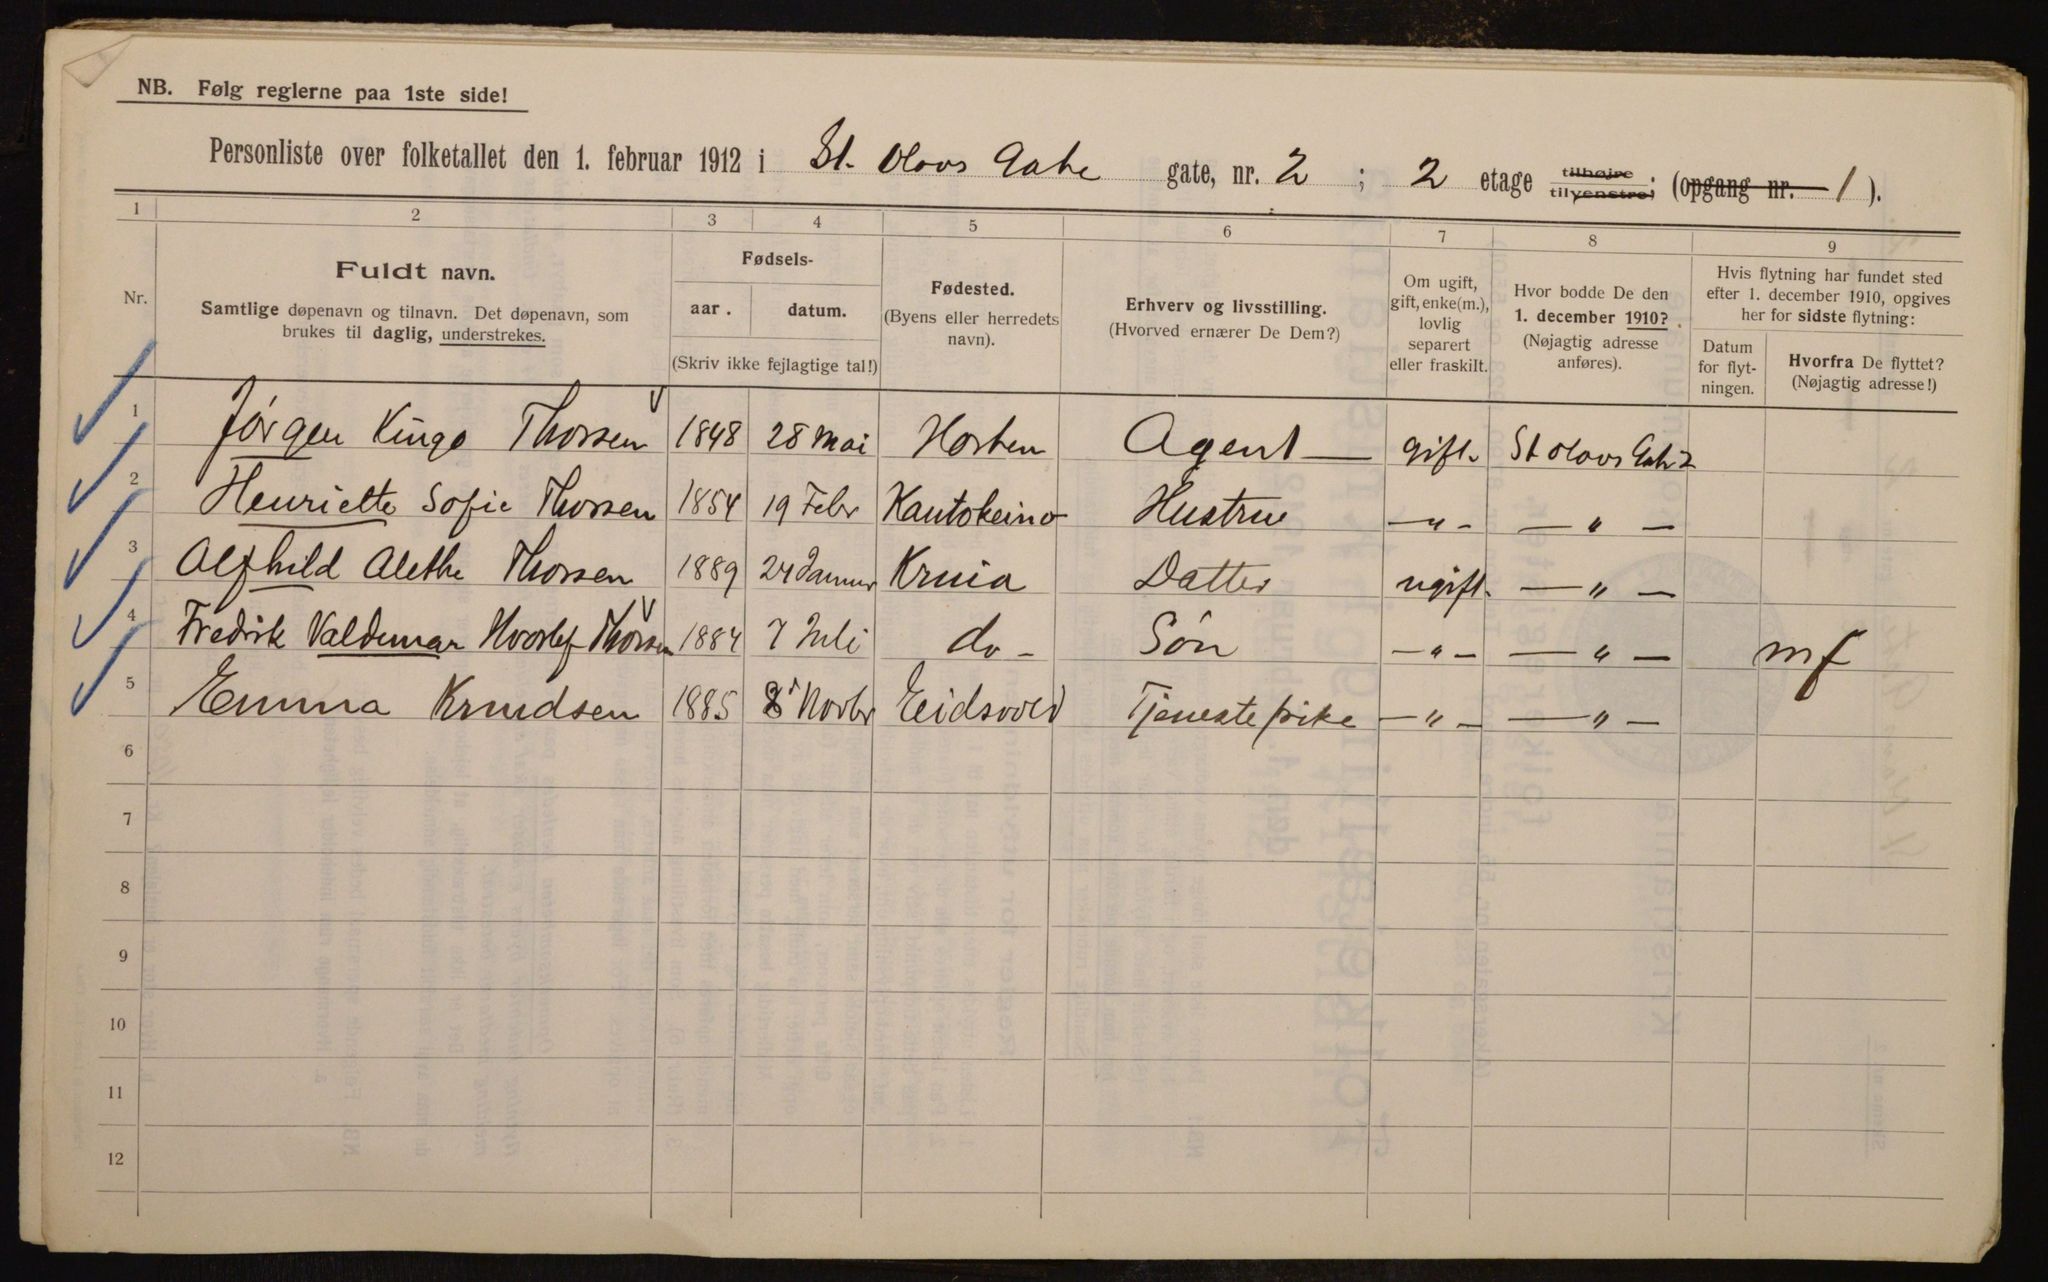 NB. Følg reglerne paa 1ste side!
Personliste over folketallet den 1. februar 1912 i St. Olavs Gate gate, nr. 2 ; 2 etage tilhøjre tilvenstre; (opgang nr. 1).
1 2 3 4 5 6 7 8 9
Nr.
Fuldt navn.
Samtlige døpenavn og tilnavn. Det døpenavn, som
brukes til daglig, understrekes.
Fødsels-
aar. datum.
(Skriv ikke fejlagtige tal!)
Fødested.
(Byens eller herredets
navn).
Erhverv og livsstilling.
(Hvorved ernærer De Dem?)
Om ugift,
gift, enke(m.),
lovlig
separert
eller fraskilt.
Hvor bodde De den
1. december 1910?
(Nøjagtig adresse
anføres).
Hvis flytning har fundet sted
efter 1. december 1910, opgives
her for sidste flytning:
Datum
for flyt-
ningen.
Hvorfra De flyttet?
(Nøjagtig adresse!)
1 Jørgen Kingo Thorsen 1848 28 Mai Horten Agent — gift. St Olavs Gate 2
2 Henriette Sofie Thorsen 1854 19 Febr Kautokeino Hustru — " — — " —
3 Alfhild Alethe Thorsen 1889 24 Januar Krnia Datter ugift. — " —
4 Fredrik Valdemar Hvoslef Thorsen 1884 7 Juli do - Søn — " — — " — mf
5 Emma Knudsen 1885 8 Novbr Eidsvold Tjenestepike — " — — " —
6
7
8
9
10
11
12